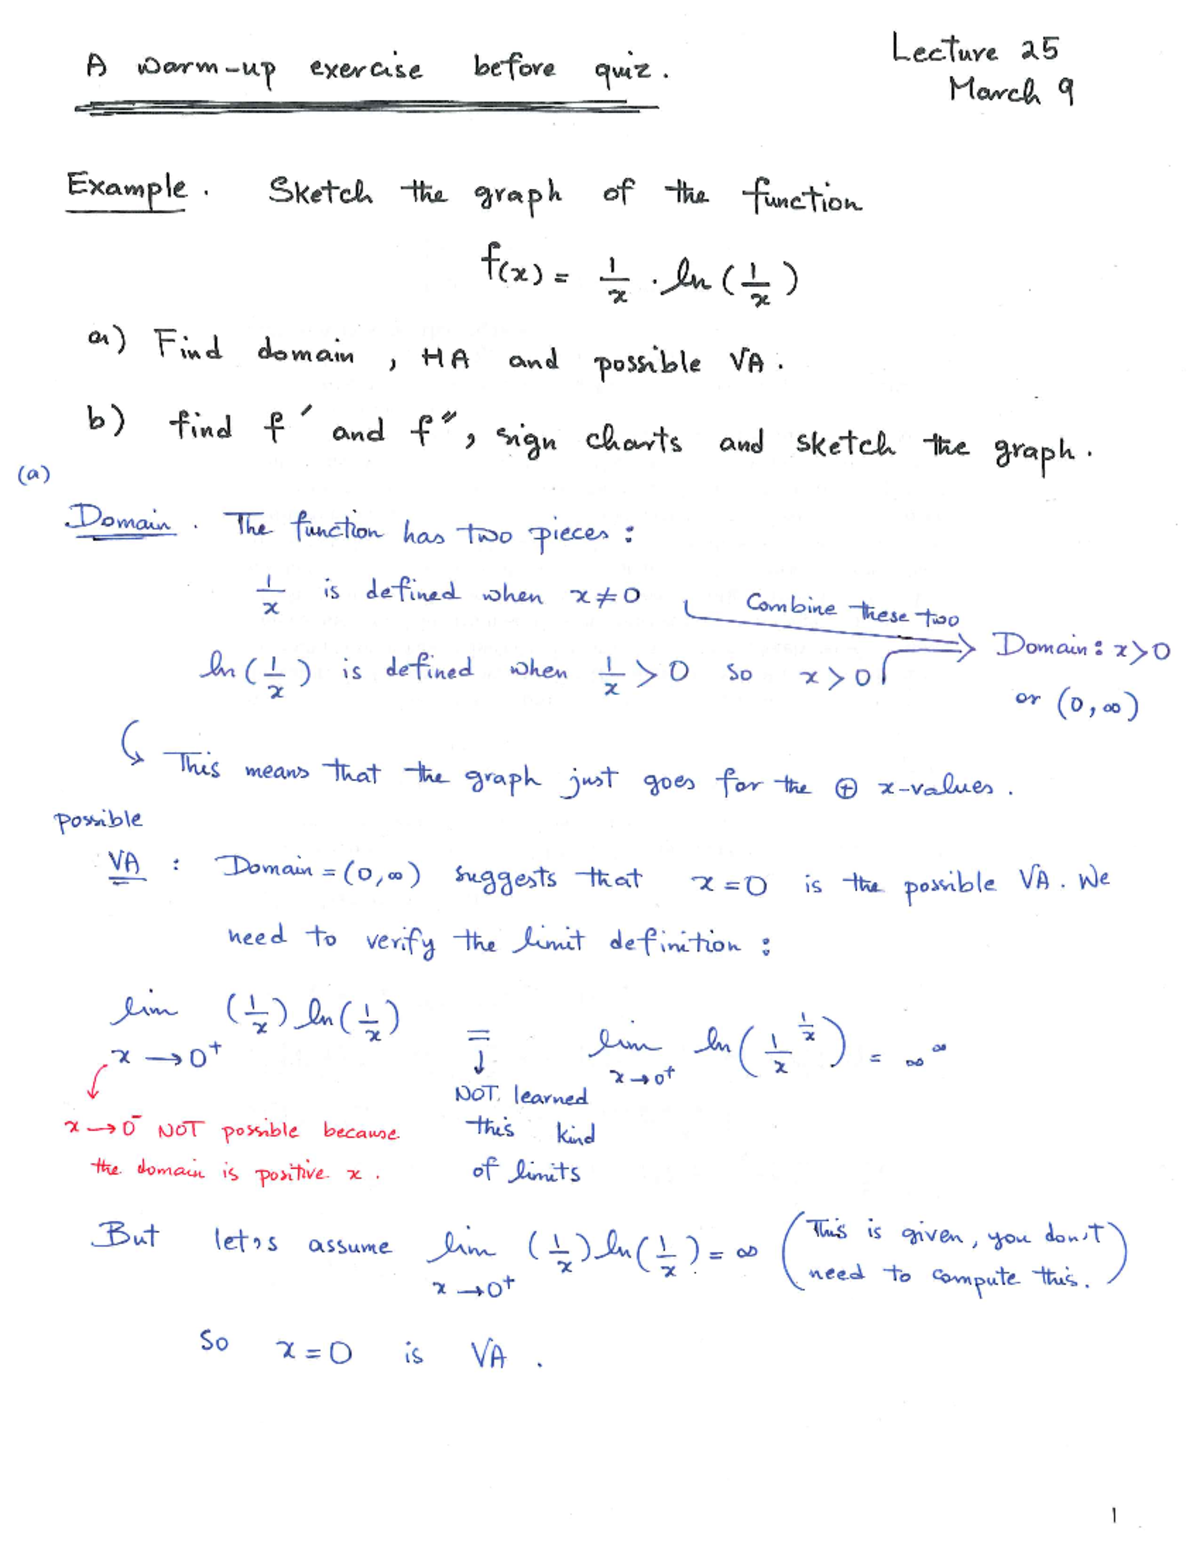 A warm-up exercise before quiz.
Lecture 25
March 9
Example. Sketch the graph of the function
f(x) = 1/x · ln(1/x)
a) Find domain, HA and possible VA.
b) find f′ and f″, sign charts and sketch the graph.
(a)
Domain. The function has two pieces:
1/x is defined when x≠0
Combine these two
ln(1/x) is defined when 1/x > 0 so x>0
Domain: x>0
or (0,∞)
This means that the graph just goes for the ⊕ x-values.
possible
VA : Domain = (0,∞) suggests that x=0 is the possible VA. We
need to verify the limit definition:
lim x→0⁺ (1/x) ln(1/x) = lim x→0⁺ ln(1/x^(1/x)) = ∞^∞
↓
NOT learned
this kind
of limits
x→0⁻ NOT possible because
the domain is positive x.
But let's assume lim x→0⁺ (1/x) ln(1/x) = ∞ (This is given, you don't
need to compute this.)
So x=0 is VA.
1